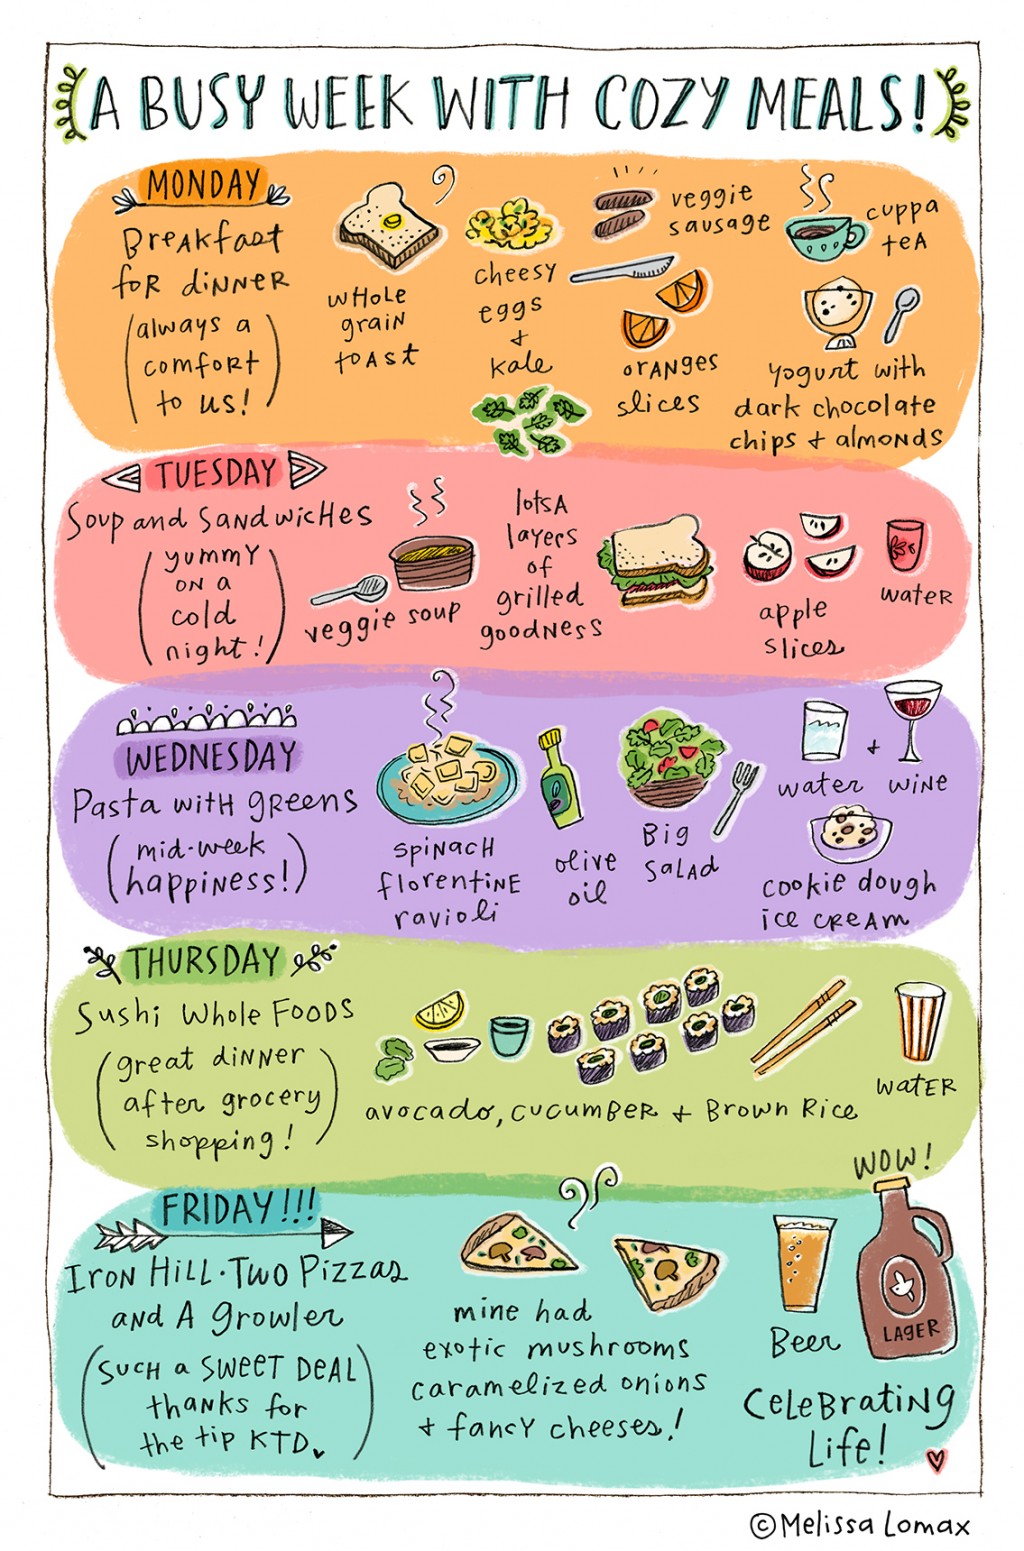 A BUSY WEEK WITH COZY MEALS!
MONDAY
Breakfast
for dinner
(always a
comfort
to us!)
whole
grain
toast
cheesy
eggs
+
kale
veggie
sausage
oranges
slices
cuppa
tea
yogurt with
dark chocolate
chips + almonds
TUESDAY
Soup and Sandwiches
(yummy
on a
cold
night!)
veggie soup
lotsa
layers
of
grilled
goodness
apple
slices
water
WEDNESDAY
Pasta with greens
(mid-week
happiness!)
spinach
florentine
ravioli
olive
oil
Big
Salad
water + wine
cookie dough
ice cream
THURSDAY
Sushi Whole Foods
(great dinner
after grocery
shopping!)
avocado, cucumber + Brown Rice
water
FRIDAY!!!
Iron Hill · Two Pizzas
and A growler
(such a sweet deal
thanks for
the tip KTD)
mine had
exotic mushrooms
caramelized onions
+ fancy cheeses!
Beer
WOW!
LAGER
Celebrating
Life!
©Melissa Lomax